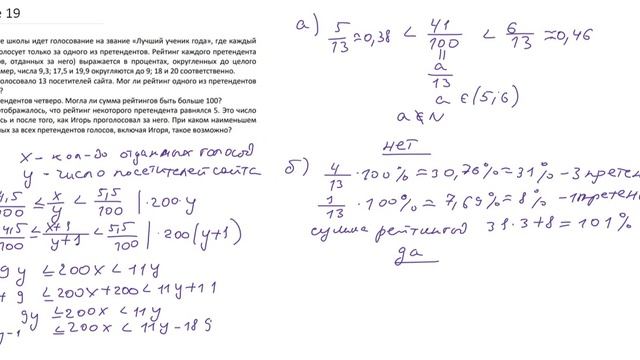 е 19
те школы идет голосование на звание «Лучший ученик года», где каждый
олосует только за одного из претендентов. Рейтинг каждого претендента
ов, отданных за него) выражается в процентах, округленных до целого
мер, числа 9,3; 17,5 и 19,9 округляются до 9; 18 и 20 соответственно.
олосовало 13 посетителей сайта. Мог ли рейтинг одного из претендентов
?
ендентов четверо. Могла ли сумма рейтингов быть больше 100?
отображалось, что рейтинг некоторого претендента равнялся 5. Это число
сь и после того, как Игорь проголосовал за него. При каком наименьшем
ных за всех претендентов голосов, включая Игоря, такое возможно?
x - кол-во отданных голосов
y - число посетителей сайта
4,5/100 ≤ x/y < 5,5/100 | ·200·y
4,5/100 ≤ x+1/y+1 < 5,5/100 | ·200(y+1)
9y ≤ 200x < 11y
+ 9 ≤ 200x+200 < 11y+11
9y ≤ 200x < 11y
y-1 ≤ 200x < 11y-189
а) 5/13 ≈ 0,38 < 41/100 < 6/13 ≈ 0,46
=
a/13
a ∈ (5; 6)
a ∉ N
нет
б) 4/13 · 100% = 30,76% = 31% - 3 претен
1/13 · 100% = 7,69% = 8% - 1 претен
сумма рейтингов 31·3+8 = 101%
да